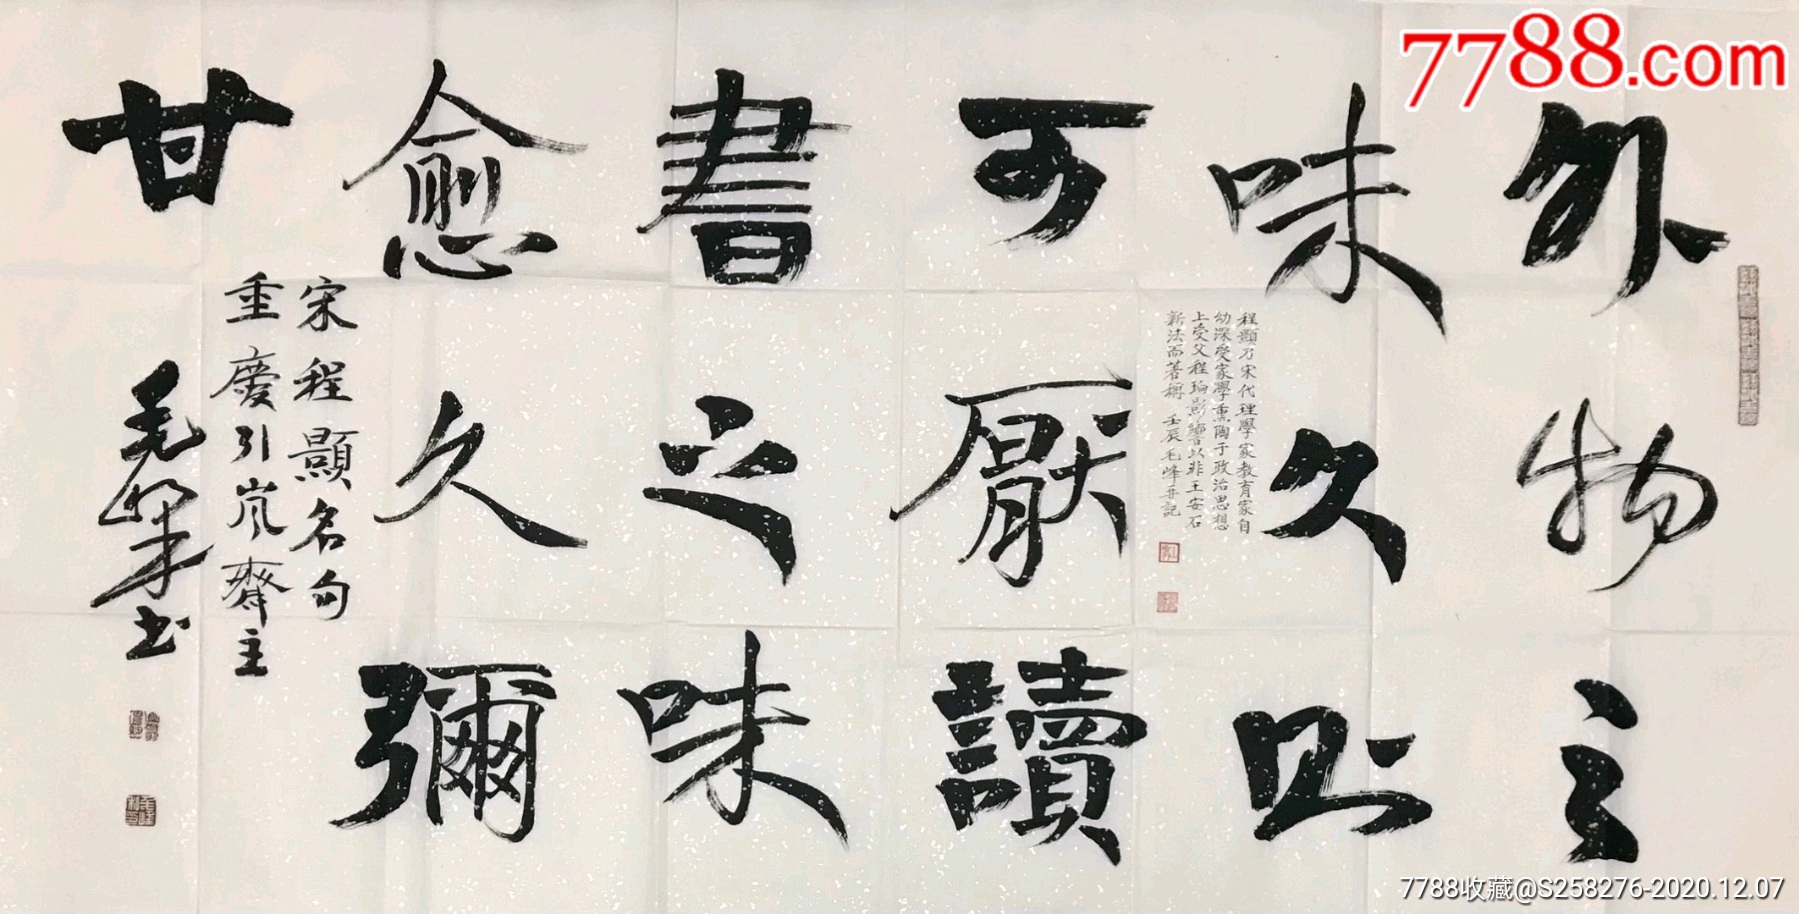 外物之
味久則
可厭讀
書之味
愈久彌
甘
程顥乃宋代理學家教育家自
幼深受家學熏陶于政治思想
上受父程珦影響以非王安石
新法而著稱 壬辰毛峰并記
宋程顥名句
重慶引嵐齋主
毛峰书
7788.com
7788收藏@S258276-2020.12.07